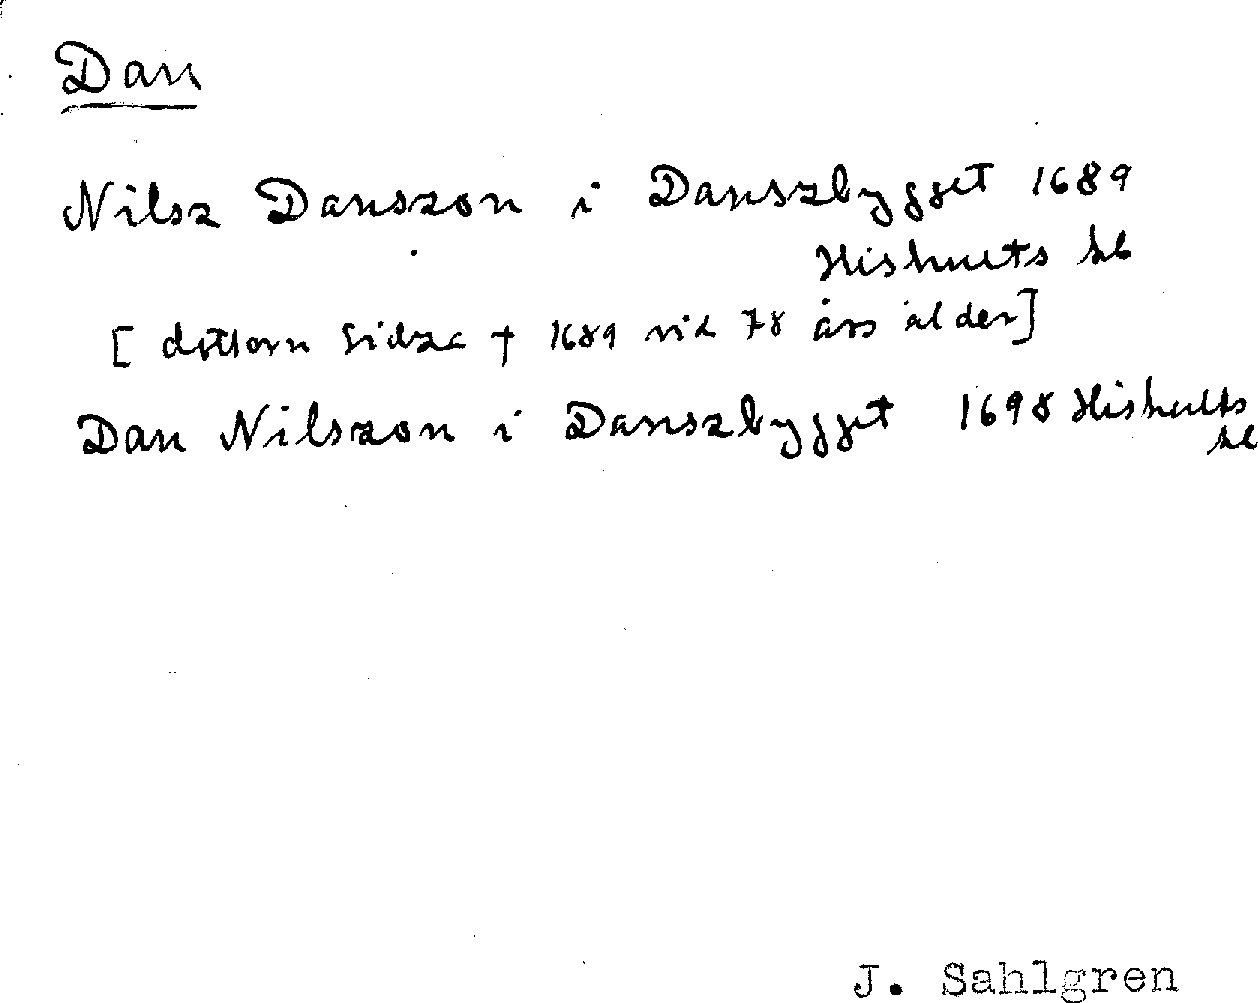 Dan
Nilsz Danszon i Danszbygget 1689
Hishults kb
[dottern Sidze † 1689 vid 78 års ålder]
Dan Nilszon i Danszbygget 1698 Hishults
kb
J. Sahlgren